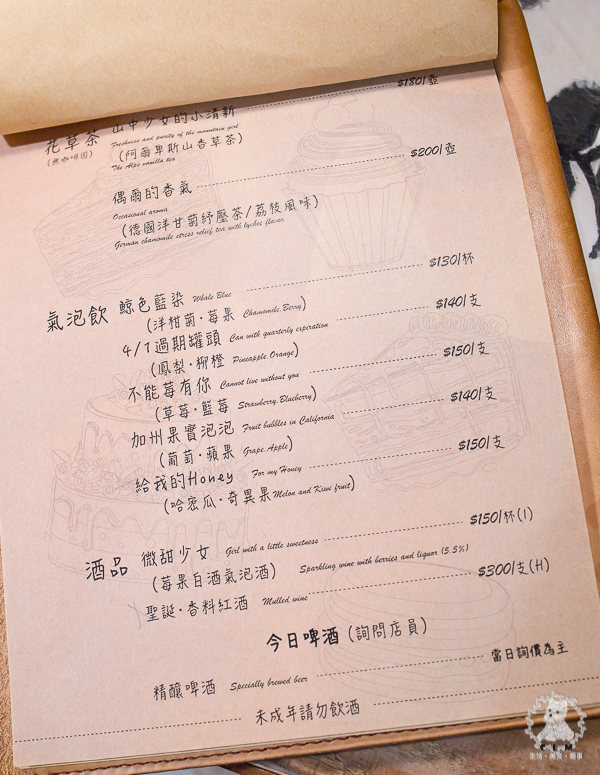 $180/壺
花草茶 山中少女的小清新
(無咖啡因) Freshness and purity of the mountain girl
(阿爾卑斯山香草茶)
The Alps vanilla tea
$200/壺
偶爾的香氣
Occasional aroma
(德國洋甘菊紓壓茶/荔枝風味)
German chamomile stress relief tea with lychee flavor
$130/杯
氣泡飲 鯨色藍染 Whale Blue
(洋柑菊·莓果 Chamomile.Berry)
$140/支
4/1過期罐頭 Can with quarterly expiration
(鳳梨·柳橙 Pineapple.Orange)
$150/支
不能莓有你 Cannot live without you
(草莓·藍莓 Strawberry.Blueberry)
$140/支
加州果實泡泡 Fruit bubbles in California
(葡萄·蘋果 Grape.Apple)
$150/支
給我的Honey For my Honey
(哈密瓜·奇異果 Melon and Kiwi fruit)
$150/杯(I)
酒品 微甜少女 Girl with a little sweetness
(莓果白酒氣泡酒) Sparkling wine with berries and liquor (5.5%)
$300/支(H)
聖誕·香料紅酒 Mulled wine
今日啤酒 (詢問店員)
當日詢價為主
精釀啤酒 Specially brewed beer
未成年請勿飲酒